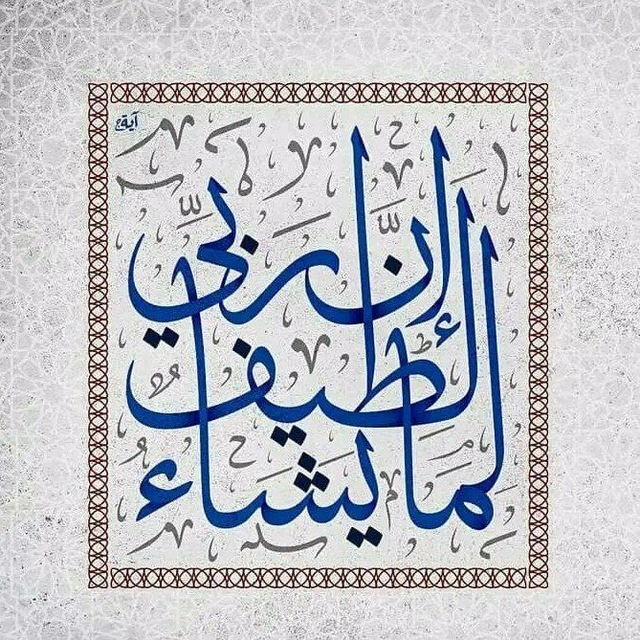 آية
إنّ ربّي
لطيفٌ
لما يشاءُ